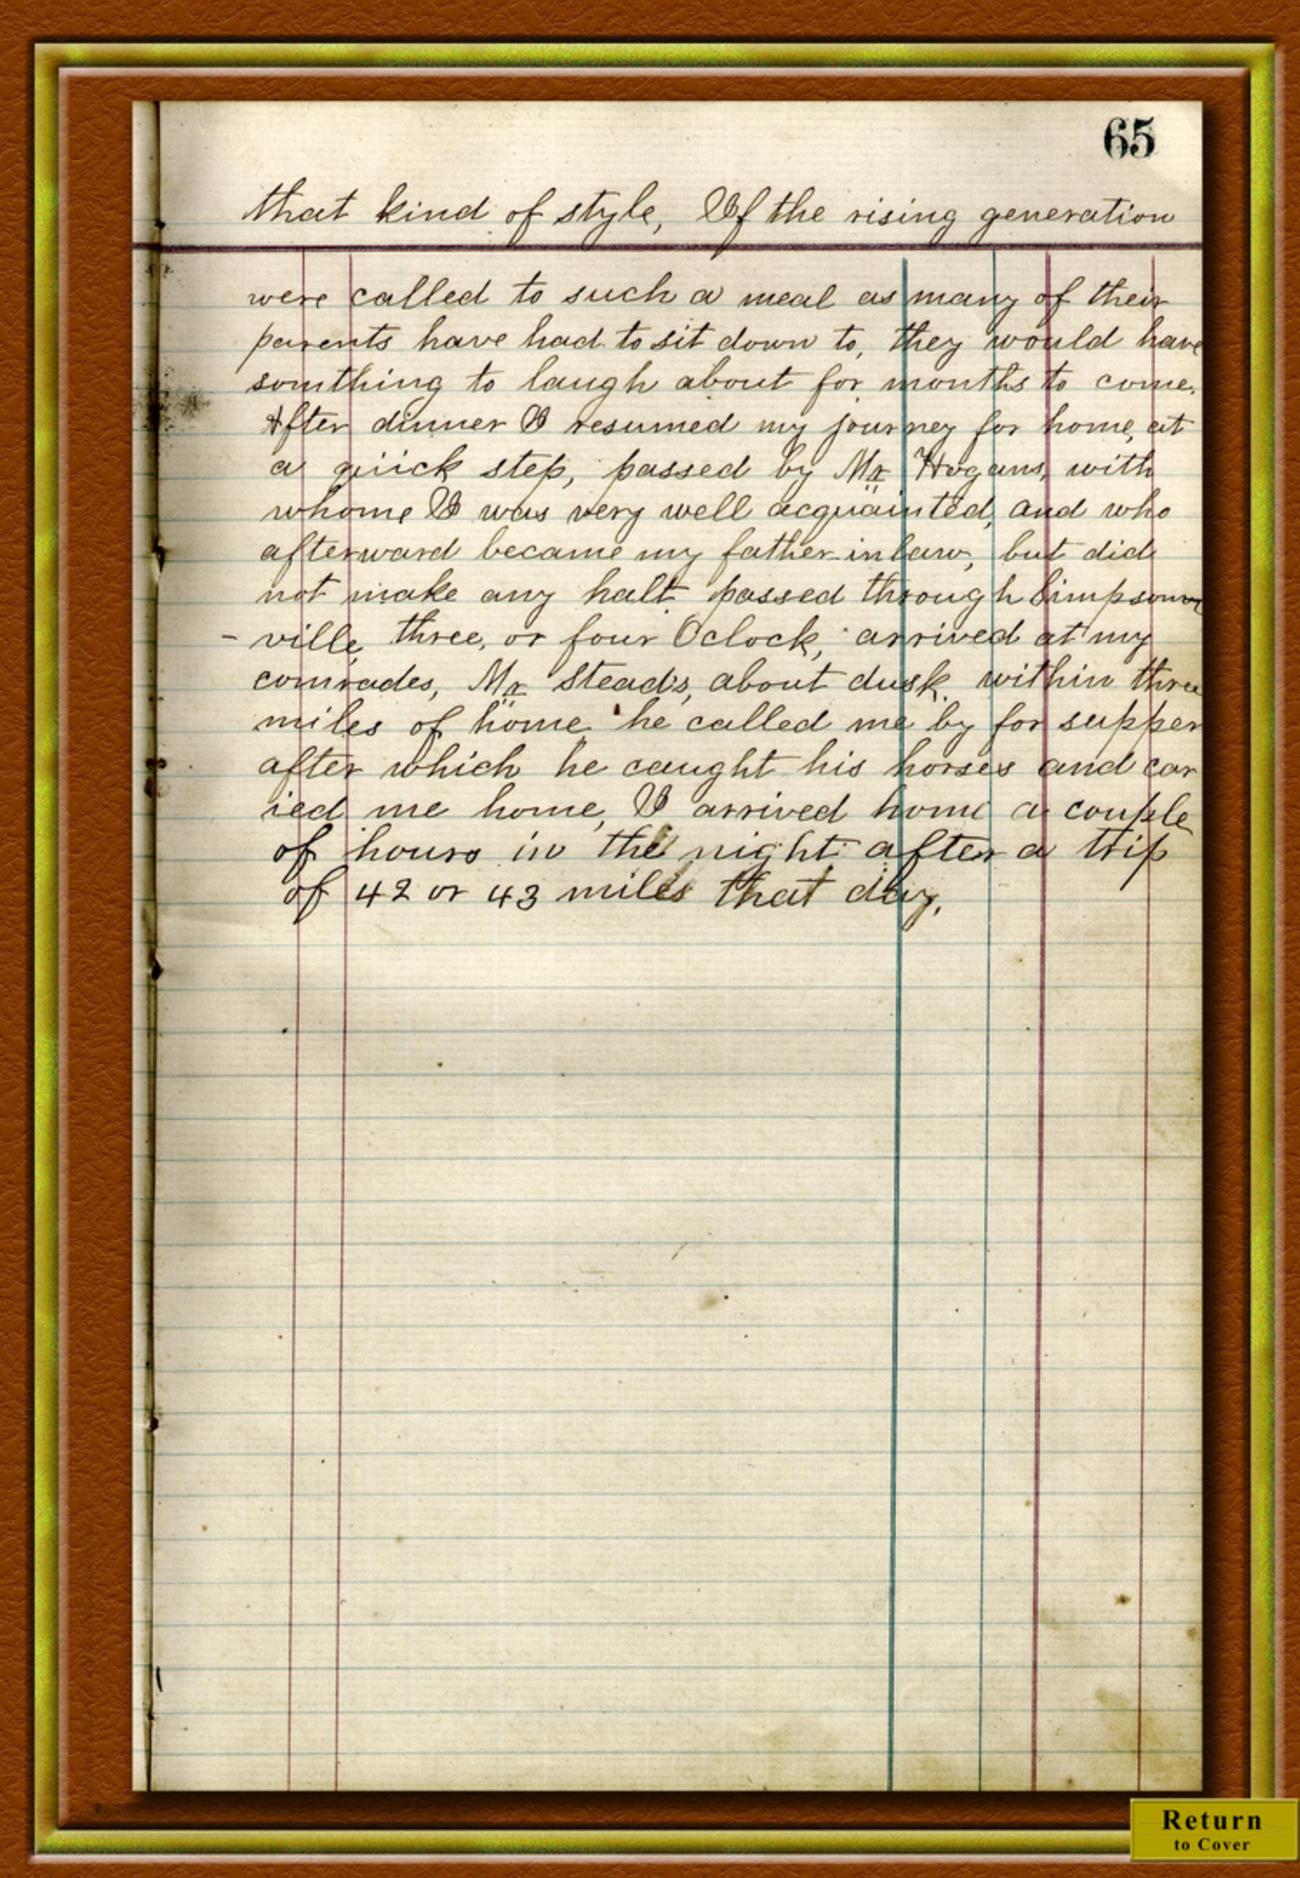 65
that kind of style, If the rising generation
were called to such a meal as many of their
parents have had to sit down to, they would have
somthing to laugh about for months to come.
After dinner I resumed my journey for home, at
a quick step, passed by Mr Hogans, with
whome I was very well acquainted, and who
afterward became my father-in law, but did
not make any halt passed through Simpson
-ville three, or four Oclock, arrived at my
comrades, Mr Stead's, about dusk within three
miles of home he called me by for supper
after which he caught his horses and car
ied me home, I arrived home a couple
of hours in the night after a trip
of 42 or 43 miles that day.
Return
to Cover